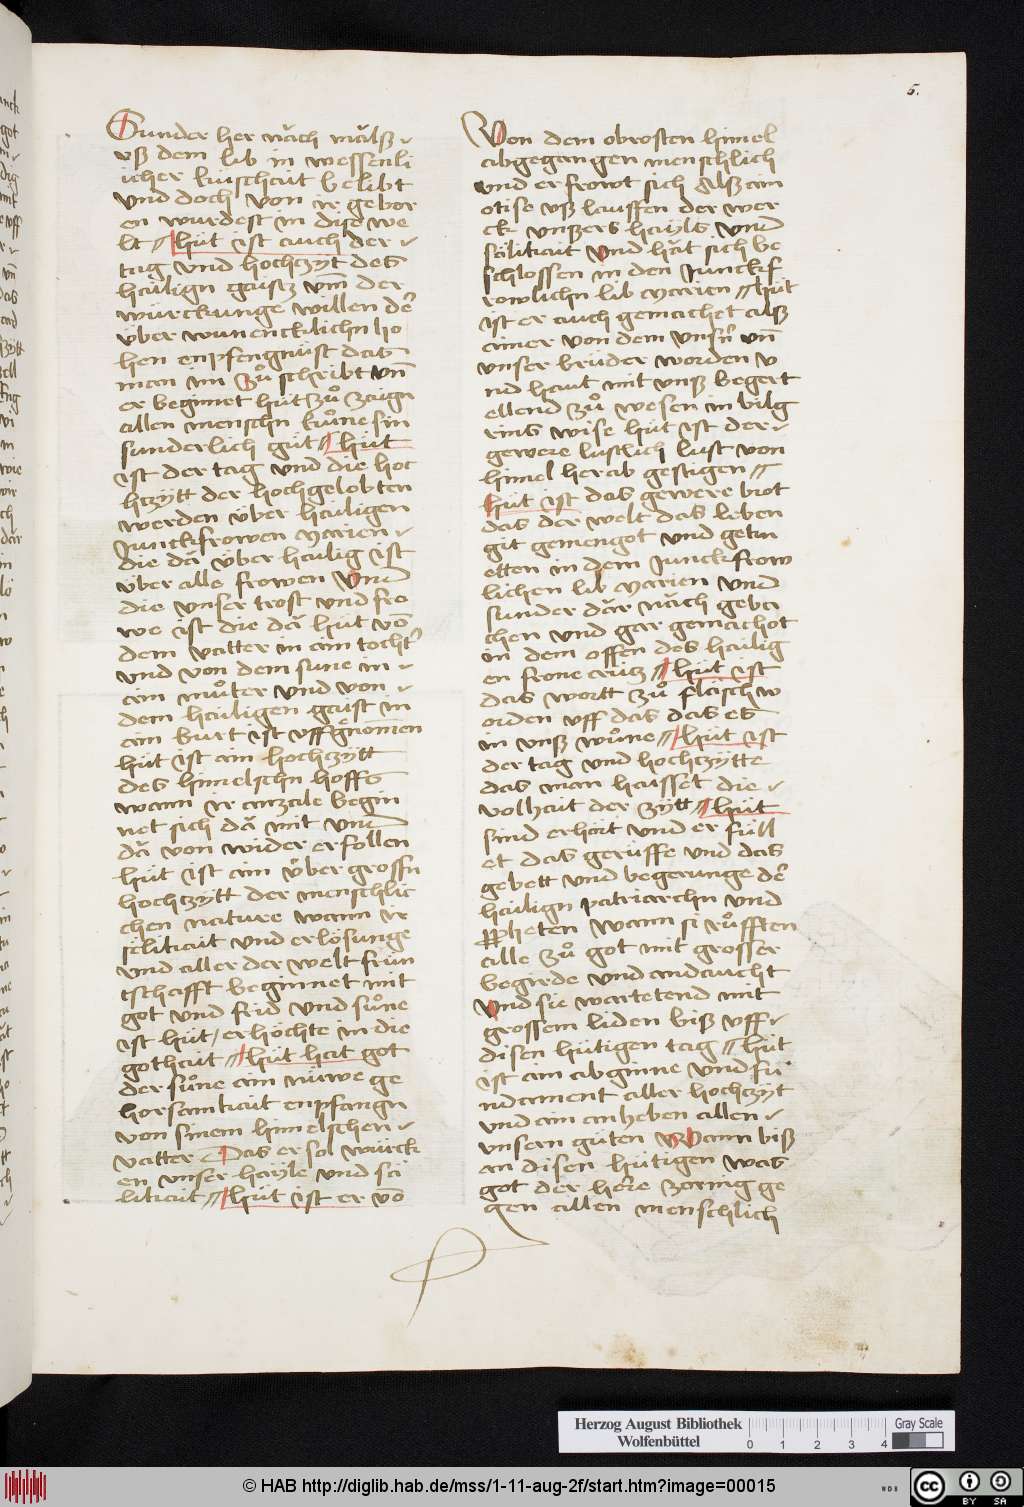 5.
Sunder her năch mălß
uß dem lib in wessenli
icher küschait belibt
vnd doch von ir gebor
en wurdest in dise we
lt // hüt ist auch der
tag vnd hochzyt des
hailign gaistz vm̄ der
würckunge willen de᷑
über wunencklichn ho
hen enpfengnüst das
man im zů schribt vn̄
er beginnet hüt zů zaign
allen menschn kůne sin
sunderlich güt // hüt
ist der tag vnd die hoc
hzÿtt der hochgelobten
werden über hailigen
Junckfrowen Marien
die dă über hailig ist
über alle frowen vnd
die vnser trost vnd fro
we ist die dă hüt vō
dem vatter in ain tocht᷑
vnd von dem sune in
ain můter vnd von
dem hailigen gaist in
ain burt ist uff gnomen
hüt ist ain hochzÿtt
des himelschn hoffs
wann ir anzale begin
net sich dă mit vnd
dă von wider erfollen
hüt ist ain über grossn
hochzÿtt der menschlic
chen nature wann ir
sälikait vnd erlösunge
vnd aller der welt frün
tschafft beginnet mit
got vnd frid vnd sůne
ist hüt / erhöchte in die
gothait // hüt hat got
der sůne ain nüwe ge
horsamkait enpfangn
von sinem himelschen
vatter Das er sol würck
en vnser hayle vnd sä
likait // hüt ist er vō
Von dem obrosten himel
abgegangen menschlich
vnd er frowt sich Alß ain
otise uß lauffen der wer
ck vnsers hayls vnd
sälikait vnd hăt sich be
schlossen in den Junckf
rowlichn lib Marien // hüt
ist er auch gemachet alß
ainer von dem vnsn᷑ vn̄
vnser brüder worden v
nd haut mit vnß begert
ellend zů wesen in bilg
rins wise hüt ist der
gewere lustlich lust von
himel herab gestigen //
hüt ist das gewere brot
das der welt das leben
git gemengot vnd getm
etten in dem Junckfrow
lichen lib Marien vnd
sunder dăr năch geba
chen vnd gar gemachot
in dem offen des hailig
en frone crütz // hüt ist
das wortt zů fläisch w
orden uff das das es
in vnß wůne // hüt ist
der tag vnd hochzÿtte
das man haisset die
volhait der zÿtt // hüt
sind erhört vnd er füll
et das gerüffe vnd das
gebett vnd begerunge de᷑
hailign patriarchn vnd
ppheten wann si růfften
alle zů got mit grosser
begirde vnd andaucht
vnd sie wartetend mit
grossem liden biß uff
disen hütigen tag // hüt
ist ain abginne vnd fu
ndament aller hochzyt
vnd ain anheben allen
vnsern güten Wann biß
an disen hütigen was
got der here zornig ge
gen allen menschlich
Herzog August Bibliothek
Wolfenbüttel
0 1 2 3 4
Gray Scale
© HAB http://diglib.hab.de/mss/1-11-aug-2f/start.htm?image=00015
WDB
cc BY SA